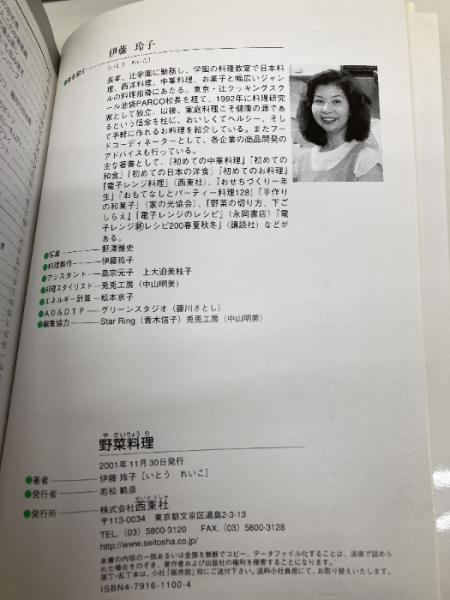 伊藤 玲子
[いとう れいこ]
長年、辻学園に勤務し、学園の料理教室で日本料
理、西洋料理、中華料理、お菓子と幅広いジャン
ルの料理指導にあたる。東京・辻クッキングスク
ール池袋PARCO校長を経て、1992年に料理研究
家として独立。以後、家庭料理こそ健康の源であ
るという信念を柱に、おいしくてヘルシー、そし
て手軽に作れるお料理を紹介している。またフー
ドコーディネーターとして、各企業の商品開発の
アドバイスも行っている。
主な著書として、『初めての中華料理』『初めての
和食』『初めての日本の洋食』『初めてのお料理』
『電子レンジ料理』（西東社）、『おせちづくり一年
生』『おもてなしとパーティー料理128』『手作り
の和菓子』（家の光協会）、『野菜の切り方、下ご
しらえ』『電子レンジのレシピ』（永岡書店）『電
子レンジ レシピ200春夏秋冬』（講談社）などが
ある。
●写真――野澤雅史
●料理製作――伊藤玲子
●アシスタント――島宗元子 上大迫美枝子
●料理スタイリスト――兎兎工房（中山明美）
●エネルギー計算――松本京子
●AD&DTP――グリーンスタジオ（藤川さとし）
●編集協力――Star Ring（青木信子）兎兎工房（中山明美）
や さいりょう り
野菜料理
2001年11月30日発行
●著者――伊藤 玲子［いとう れいこ］
●発行者――若松 範彦
せいとうしゃ
●発行所――株式会社西東社
〒113-0034 東京都文京区湯島2-3-13
TEL.（03）5800-3120 FAX.（03）5800-3128
http://www.seitosha.co.jp/
本書の内容の一部あるいは全部を無断でコピー、データファイル化することは、法律で認めら
れた場合をのぞき、著作者および出版社の権利を侵害することになります。
落丁・乱丁本は、小社「販売部」宛にご送付下さい。送料小社負担にて、お取り替えいたします。
ISBN4-7916-1100-4